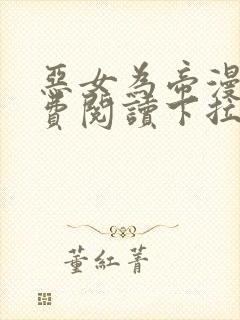 惡女為帝漫
費閱讀下拉
董紅菁